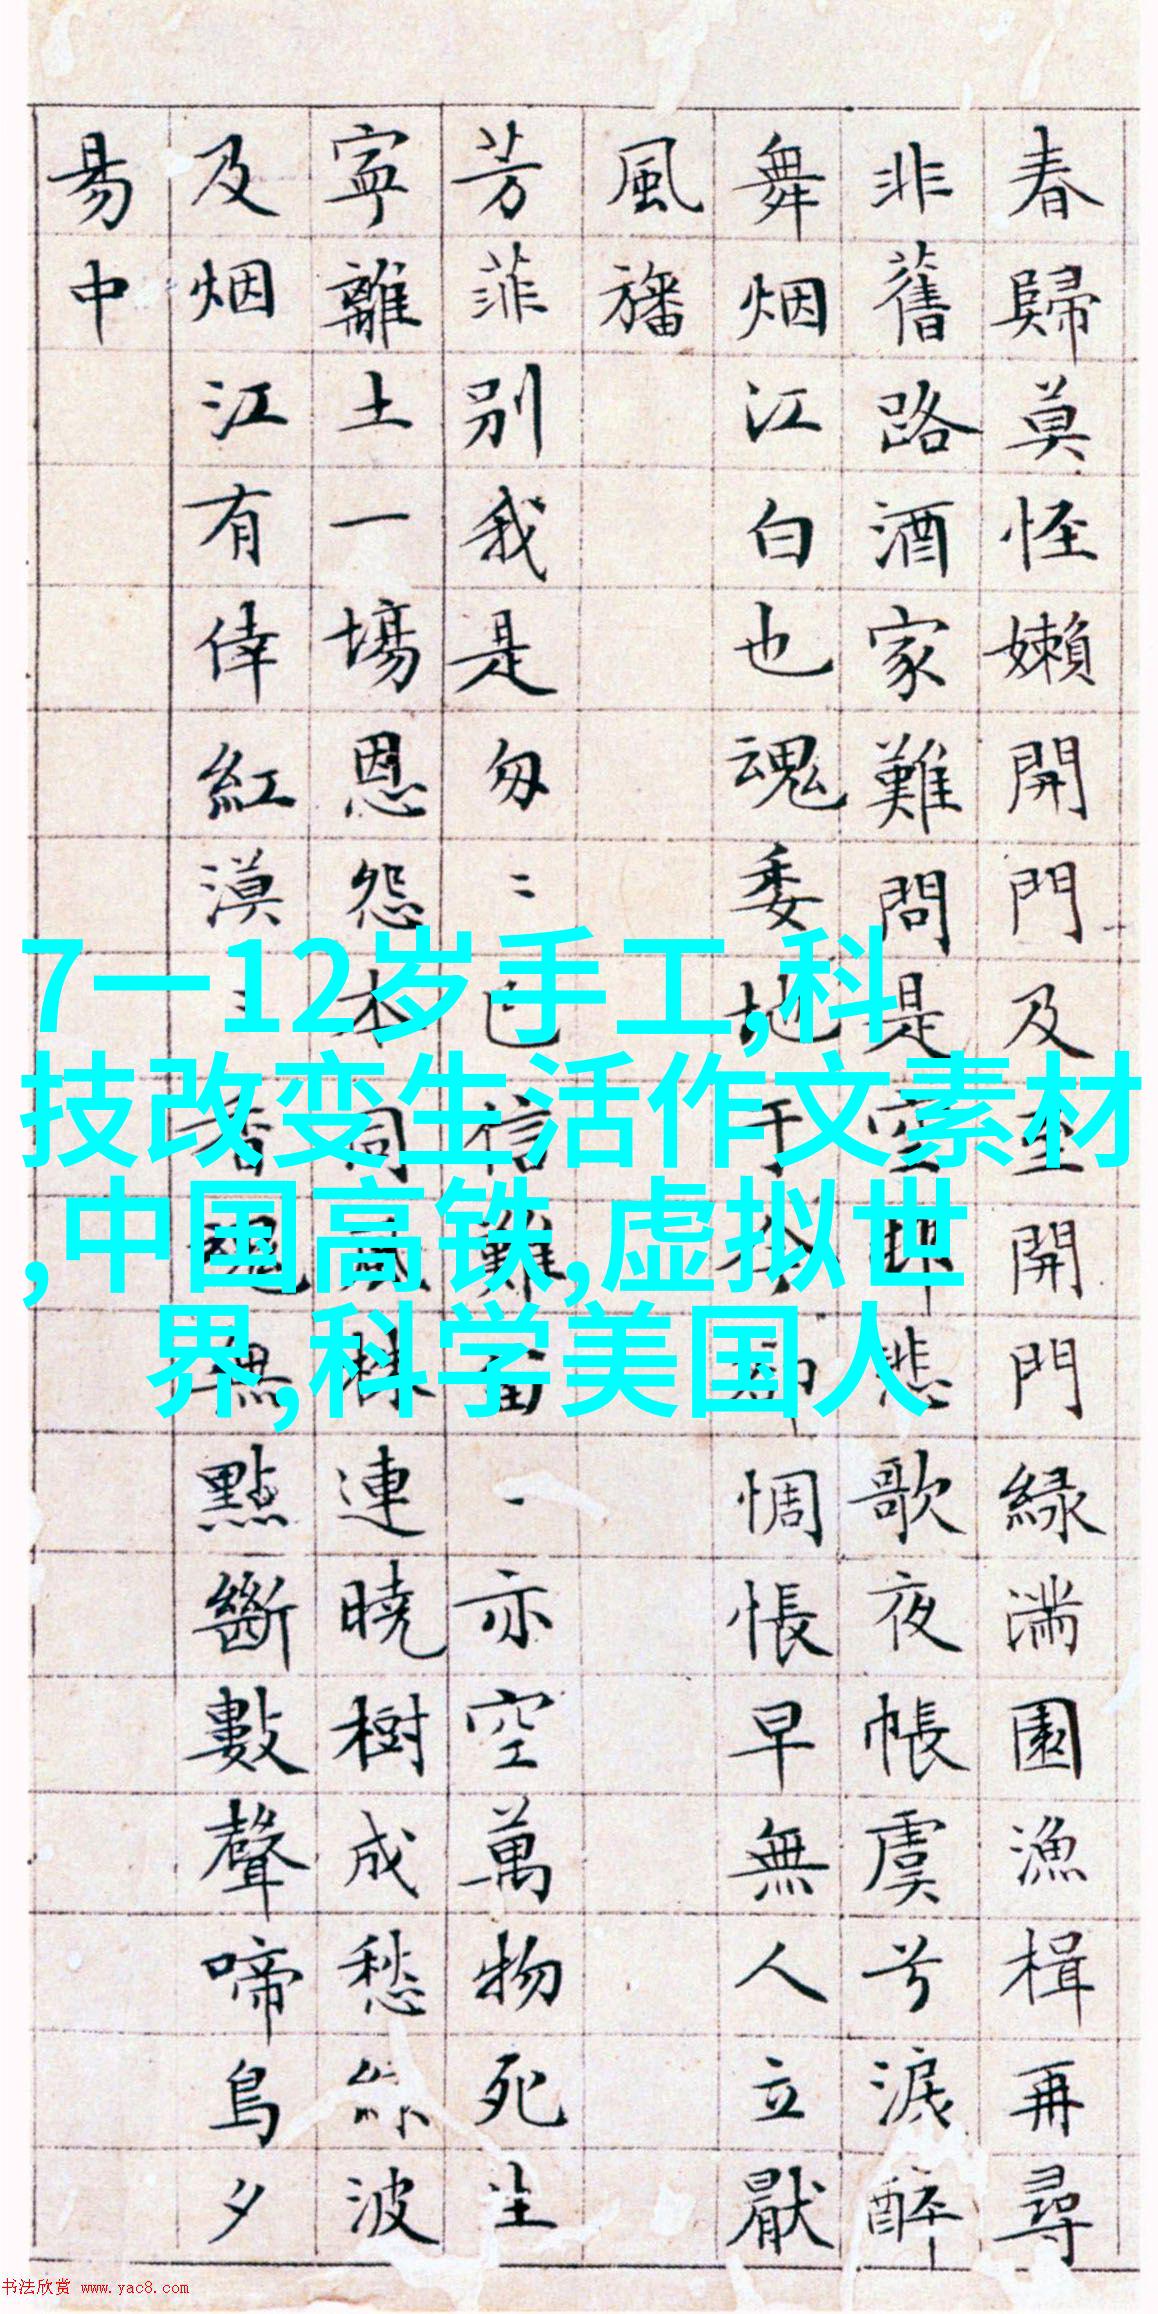 春歸莫怪嬾開門及至開門緑滿園漁楫再尋
非舊路酒家難問是空邨悲歌夜帳虞兮淚醉
舞烟江白也魂委地于今却惆悵早無人立厭
風旛
芳菲別我是匆〻已信難留一亦空萬物死生
寧離土一場恩怨本同風株連曉樹成愁波
及烟江有倖紅漠〻香魂無點斷數聲啼鳥夕
易中
7一12岁手工,科
技改变生活作文素材
,中国高铁,虚拟世
界,科学美国人
书法欣赏 www.yac8.com